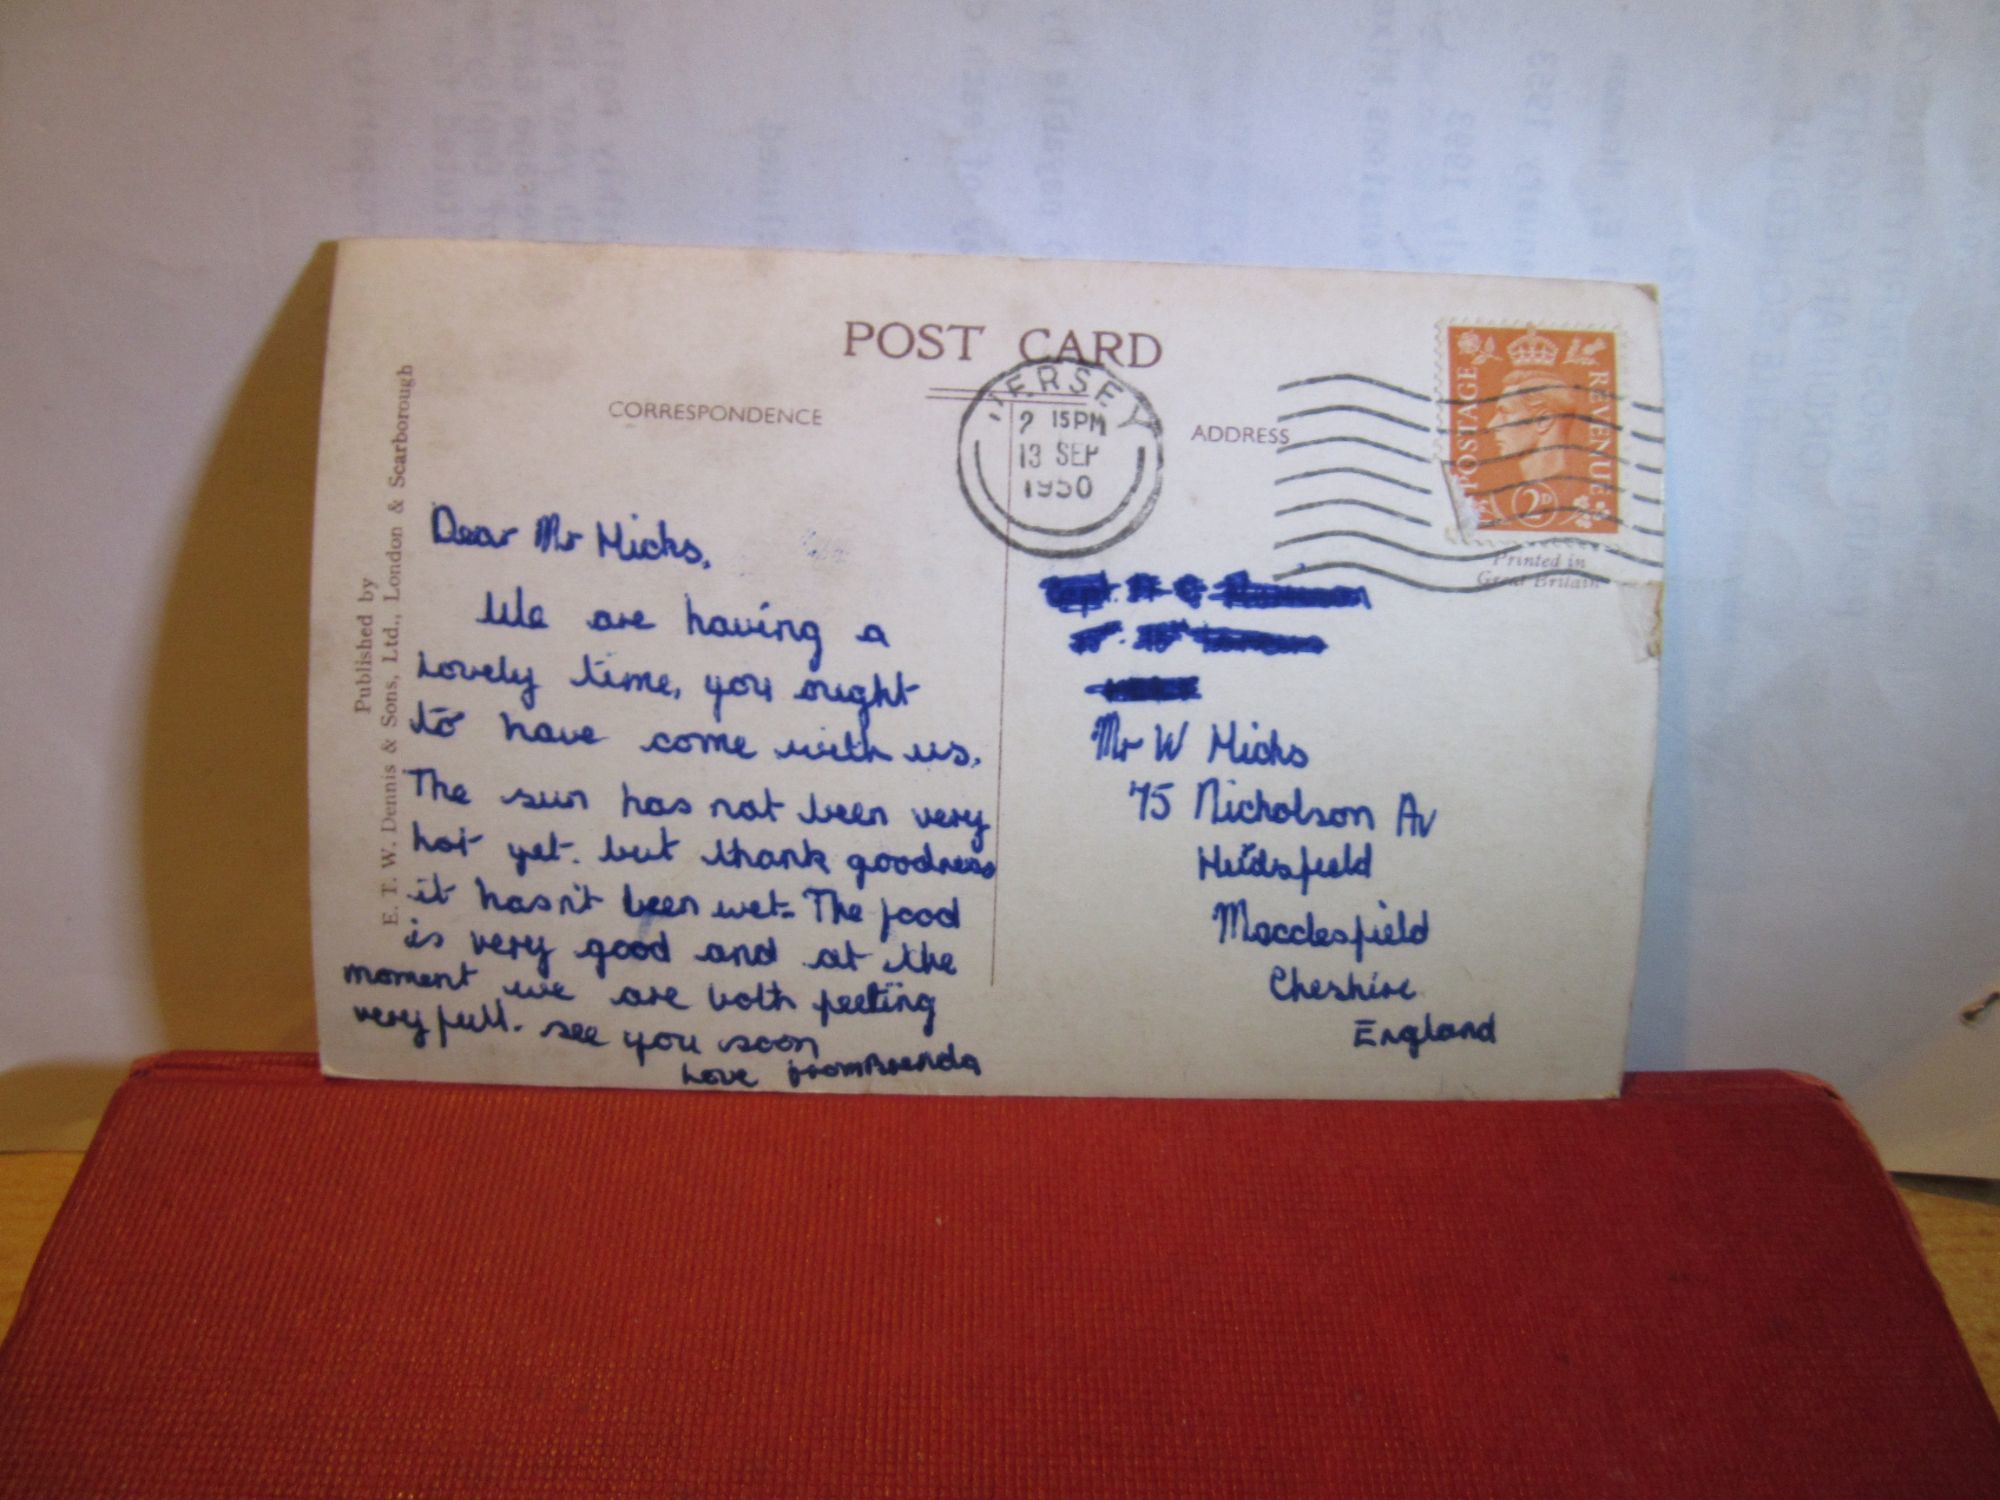 POST CARD
CORRESPONDENCE
ADDRESS
JERSEY
2 15PM
13 SEP
1950
POSTAGE
REVENUE
2D
Printed in
Great Britain
Published by
E. T. W. Dennis & Sons, Ltd., London & Scarborough
Dear Mr Hicks,
We are having a
lovely time, you ought
to have come with us.
The sun has not been very
hot yet. but thank goodness
it hasn't been wet. The food
is very good and at the
moment we are both feeling
very full. see you soon
Love from Brenda
Mr W Hicks
75 Nicholson Av
Hurdsfield
Macclesfield
Cheshire
England